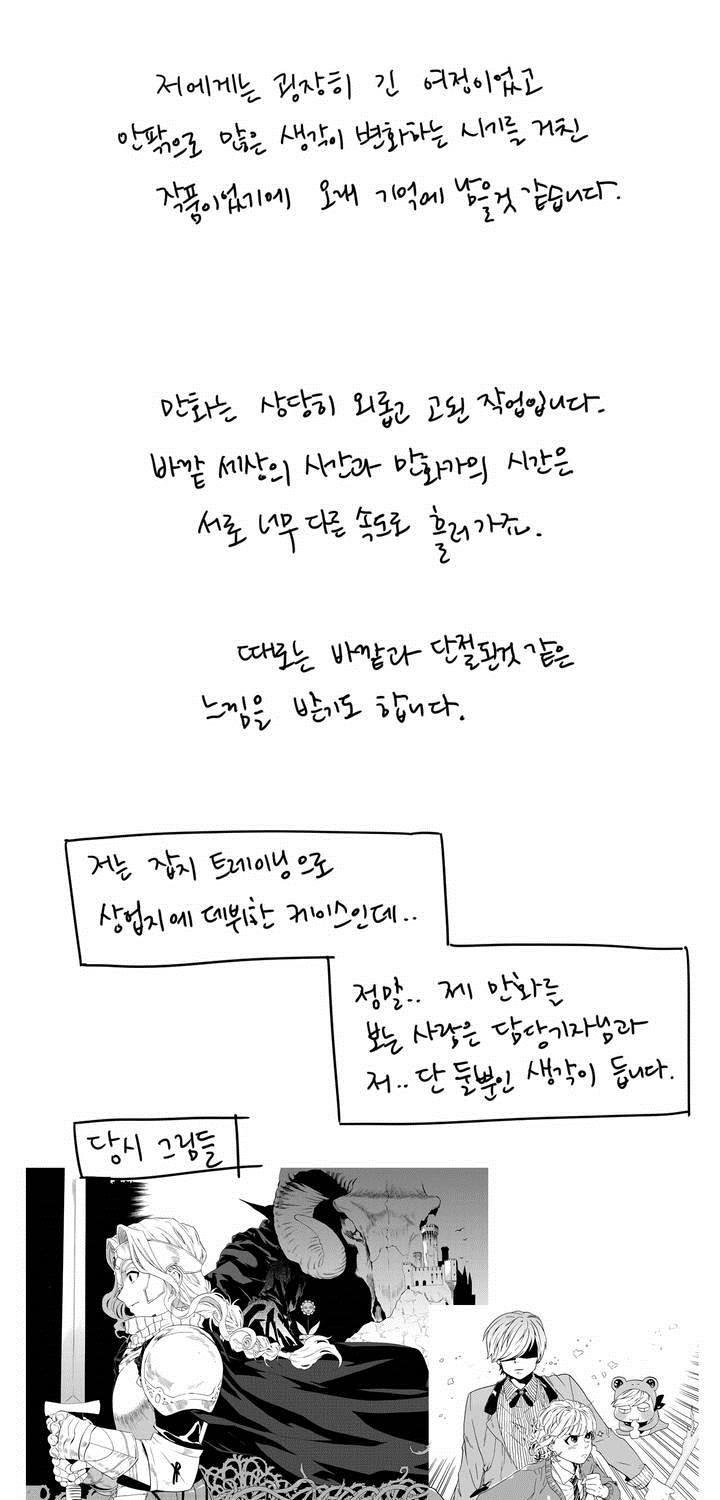 저에게는 굉장히 긴 여정이었고
안팎으로 많은 생각이 변화하는 시기를 거친
작품이었기에 오래 기억에 남을것 같습니다.
만화는 상당히 외롭고 고된 작업입니다.
바깥 세상의 시간과 만화가의 시간은
서로 너무 다른 속도로 흘러가죠.
때로는 바깥과 단절된것 같은
느낌을 받기도 합니다.
저는 잡지 트레이닝으로
상업지에 데뷔한 케이스인데..
정말.. 제 만화를
보는 사람은 담당기자님과
저.. 단 둘뿐인 생각이 듭니다.
당시 그림들